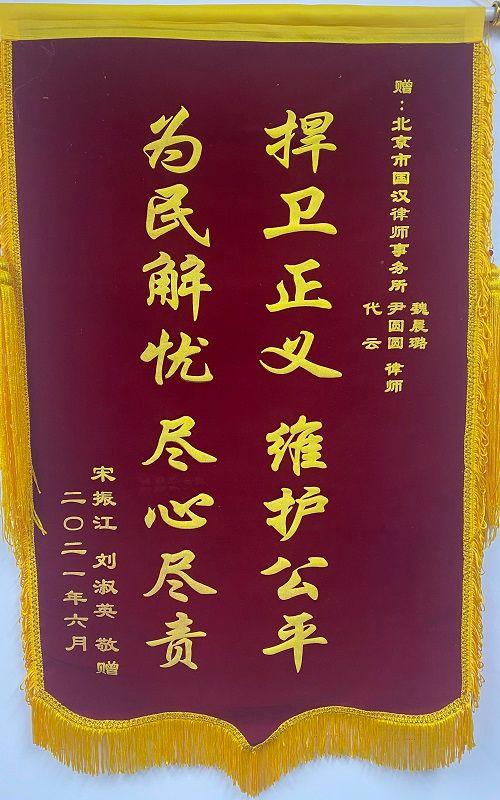 赠：北京市国汉律师事务所
魏晨璐
尹圆圆 律师
代云
捍卫正义 维护公平
为民解忧 尽心尽责
宋振江 刘淑英 敬赠
二〇二一年六月